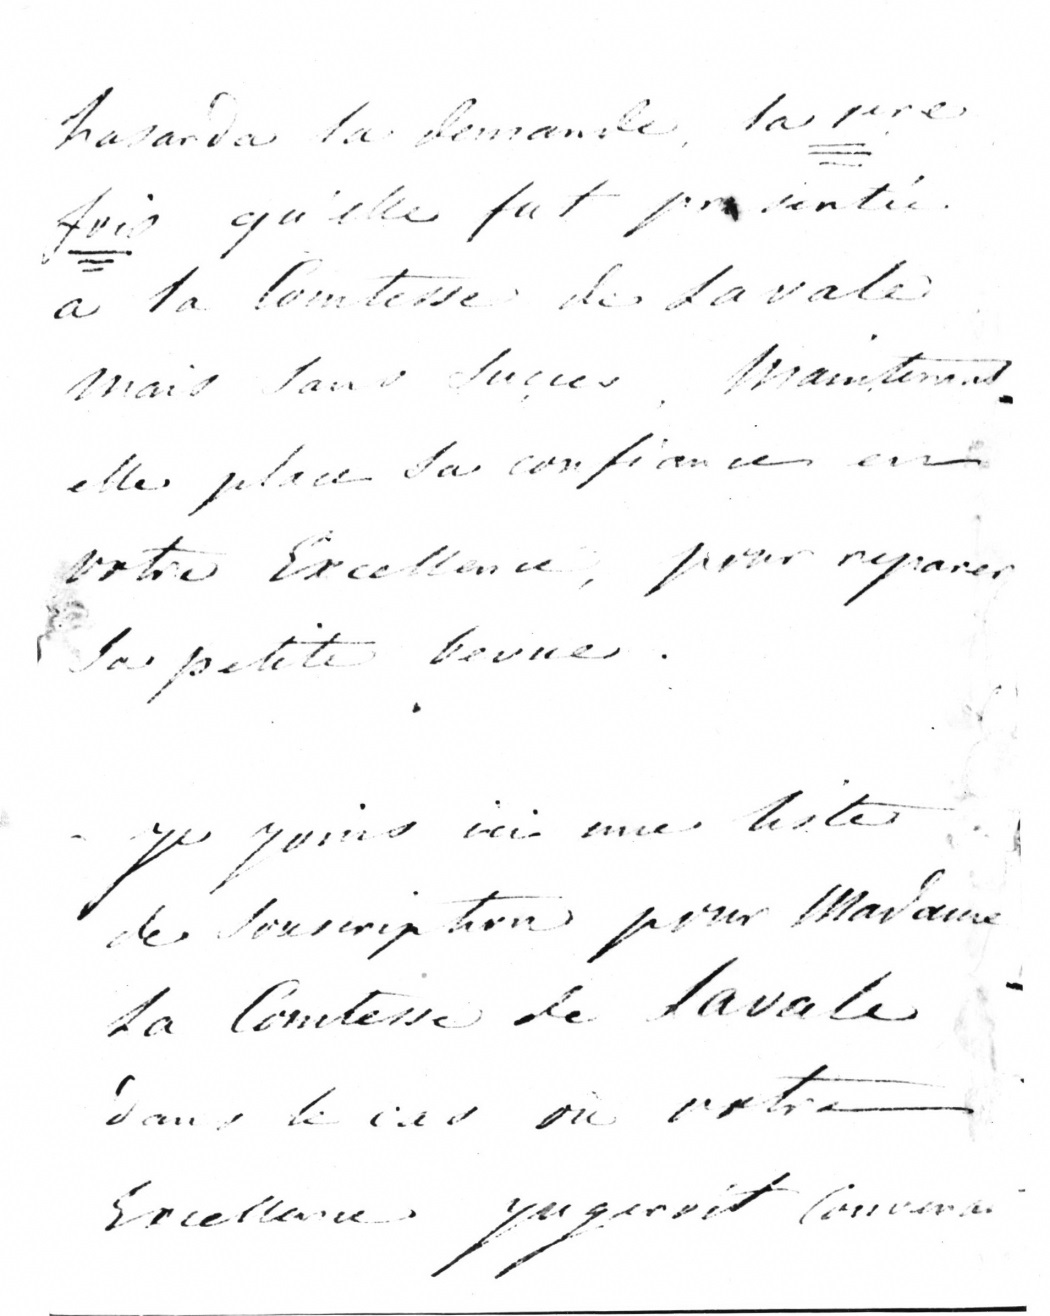 hasarda la demande, la 1ere
fois qu'elle fut présentée
a la Comtesse de Lavale
mais sans suçces. Maintenant
elle place sa confiance en
votre Excellence, pour reparer
sa petite bevue.
je joins ici une liste
de souscription pour Madame
la Comtesse de Lavale
dans le cas où votre
Excellence jugeroit